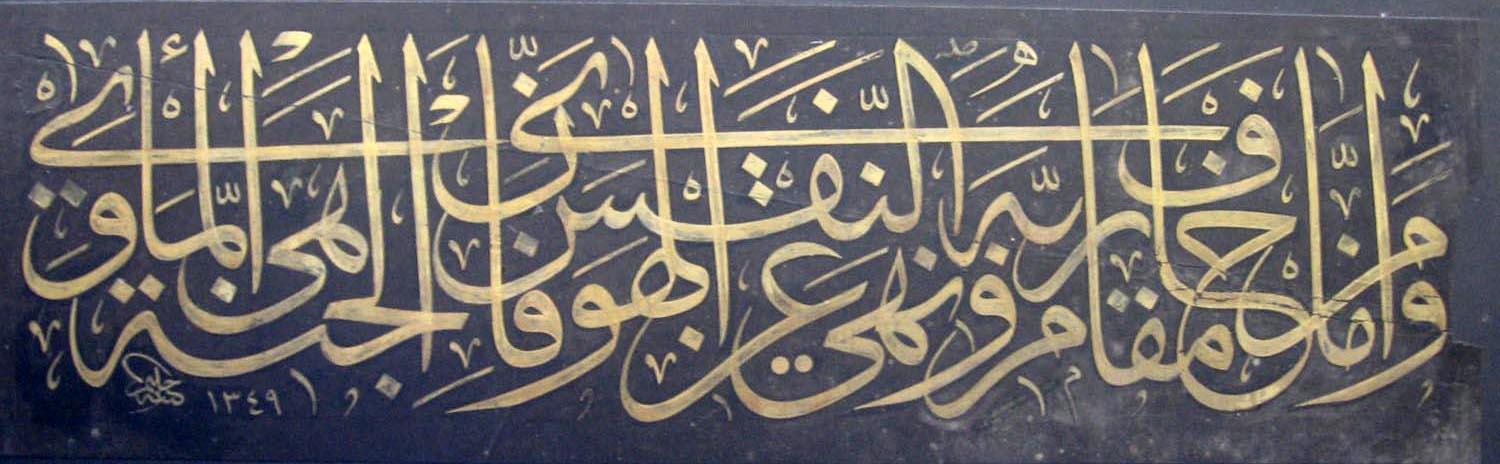 وَأَمَّا مَنْ خَافَ مَقَامَ رَبِّهِ وَنَهَى النَّفْسَ عَنِ الْهَوَى فَإِنَّ الْجَنَّةَ هِيَ الْمَأْوَى
كتبه حامد ١٣٤٩